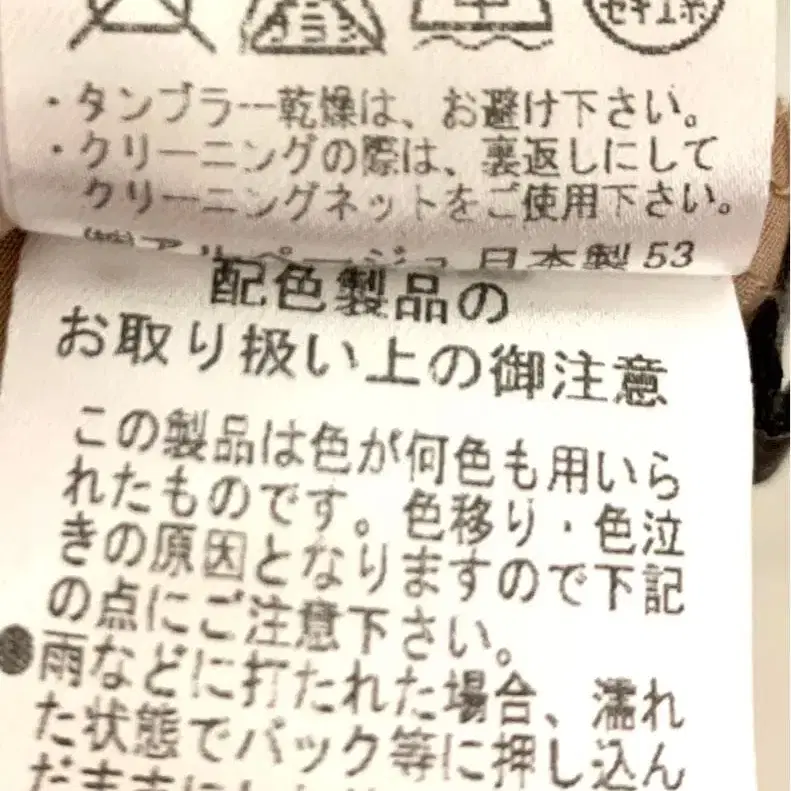 セキユ系
・タンブラー乾燥は、お避け下さい。
・クリーニングの際は、裏返しにして
クリーニングネットをご使用下さい。
日本製 53
配色製品の
お取り扱い上の御注意
この製品は色が何色も用いら
れたものです。色移り・色泣
きの原因となりますので下記
の点にご注意下さい。
●雨などに打たれた場合、濡れ
た状態でバック等に押し込ん